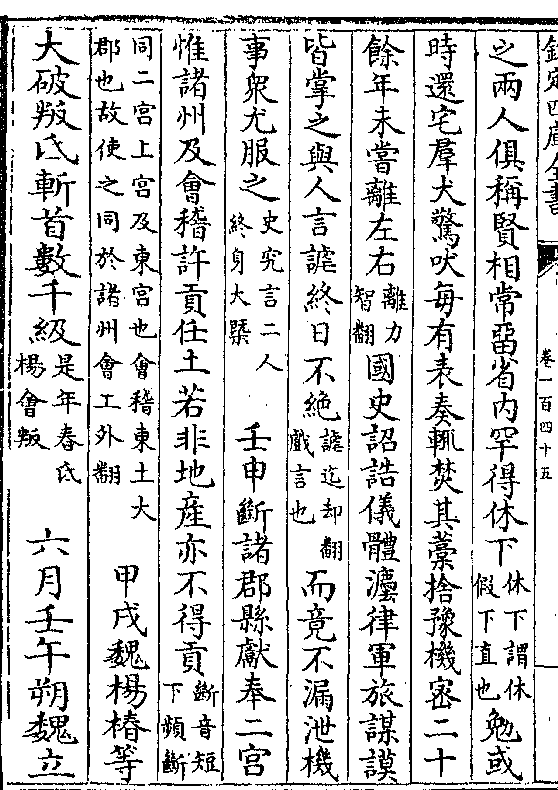 欽定四庫全書
卷一百四十五
之兩人俱稱賢相常畱省内罕得休下休下謂休假下直也勉或
時還宅羣犬驚吠每有表奏輒焚其藁捨豫機密二十
餘年未嘗離左右離力智翻國史詔誥儀體灋律軍旅謀謨
皆掌之與人言謔終日不絶謔迄却翻戲言也而竟不漏泄機
事衆尤服之史究言二人終身大槩壬申斷諸郡縣獻奉二宫
惟諸州及會稽許貢任土若非地産亦不得貢斷音短下頻斷
同二宫上宫及東宫也會稽東土大郡也故使之同於諸州會工外翻甲戌魏楊椿等
大破叛氐斬首數千級是年春氐楊會叛六月壬午朔魏立